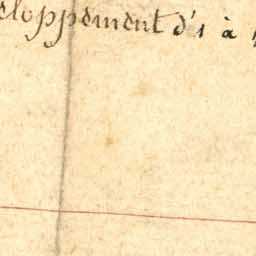 eloppement d'1 à